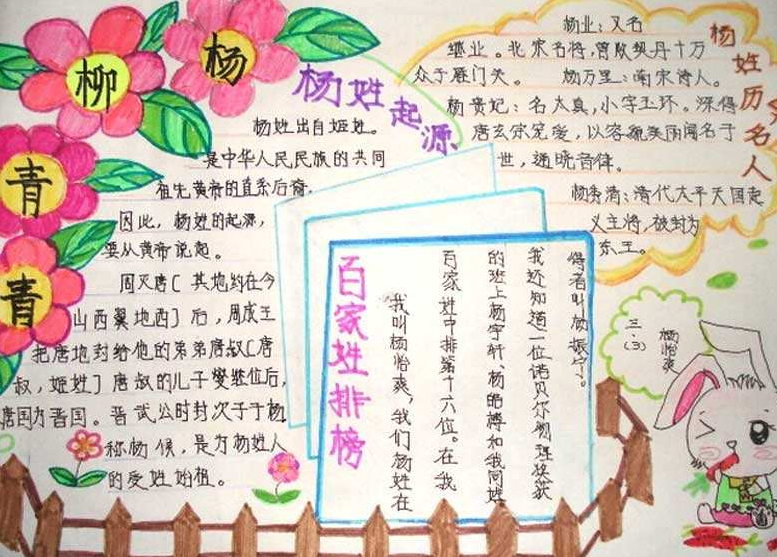 杨
柳
青
青
杨姓起源
杨姓出自姬姓。
是中华人民民族的共同
祖先黄帝的直系后裔，
因此，杨姓的起源，
要从黄帝说起。
周灭唐〔其地约在今
山西翼地西〕后，周成王
把唐地封给他的弟弟唐叔〔唐
叔，姬姓〕唐叔的儿子燮继位后，
唐国为晋国。晋武公时封次子于杨
称杨候，是为杨姓人
的受姓始祖。
杨姓历名人
杨业：又名
继业。北宋名将，曾败契丹十万
众于雁门关。 杨万里：南宋诗人。
杨贵妃：名太真，小字玉环。深得
唐玄宗宠爱，以容貌美丽闻名于
世，通晓音律。
杨秀清：清代太平天国起
义主将，被封为
东王。
百家姓排榜
我叫杨怡爽，我们杨姓在
百家姓中排第十六位。在我
的班上杨宇轩、杨皓博和我同姓
我还知道一位诺贝尔物理奖获
得者叫杨振宁！。
三．(3)
杨怡爽